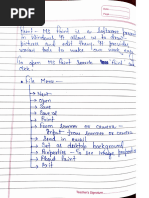 Paint - MS Paint is a software program
in Windows. It allows us to draw
pictures and edit them. It provides
various tools to make our work
To open MS Paint Search Paint and
open
• File Menu -
→ New
→ Open
→ Save
→ Save as
→ Print
→ From scanner or camera -
from scanner or camera
→ Send in email
→ Set as desktop background
→ Properties - To see image properties
→ About Paint
→ Exit
Teacher's Signature